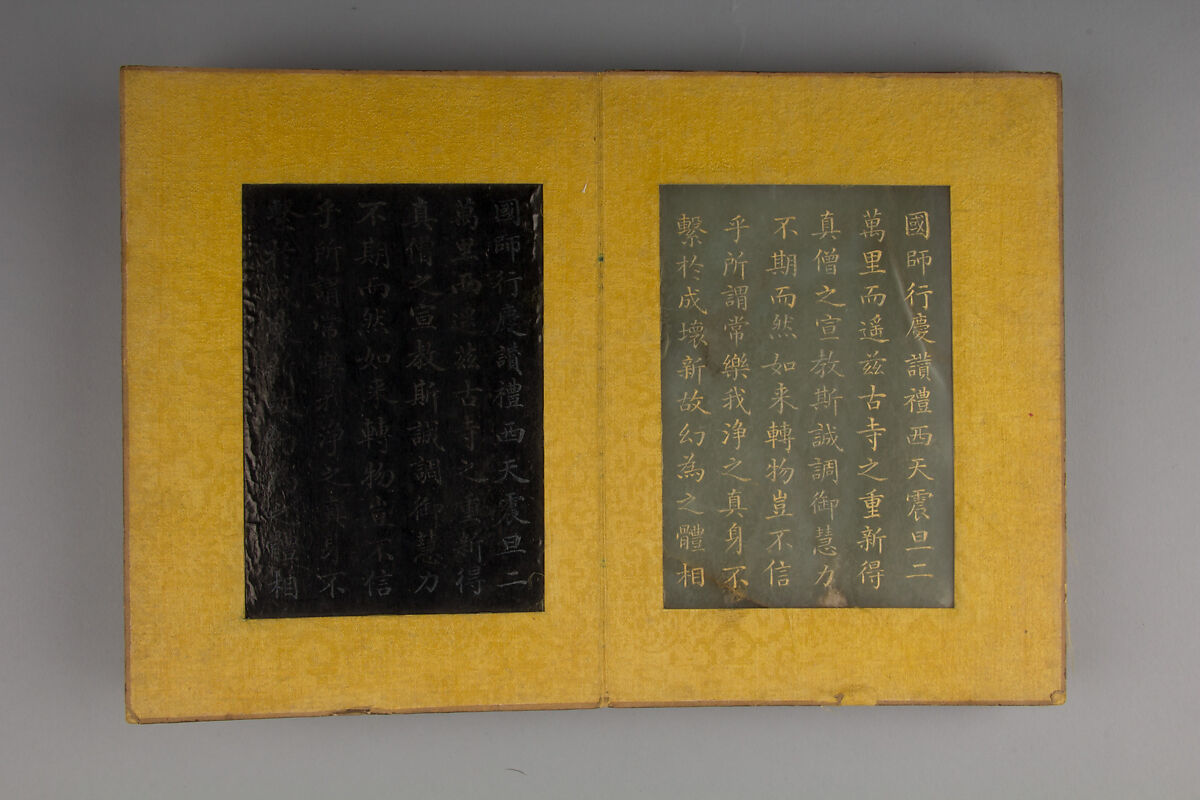 國師行慶讚禮西天震旦二
萬里而遥兹古寺之重新得
真僧之宣教斯誠調御慧力
不期而然如来轉物豈不信
乎所謂常樂我浄之真身不
繫於成壊新故幻為之體相
國師行慶讚禮西天震旦二
萬里而遥兹古寺之重新得
真僧之宣教斯誠調御慧力
不期而然如来轉物豈不信
乎所謂常樂我浄之真身不
繫於成壊新故幻為之體相